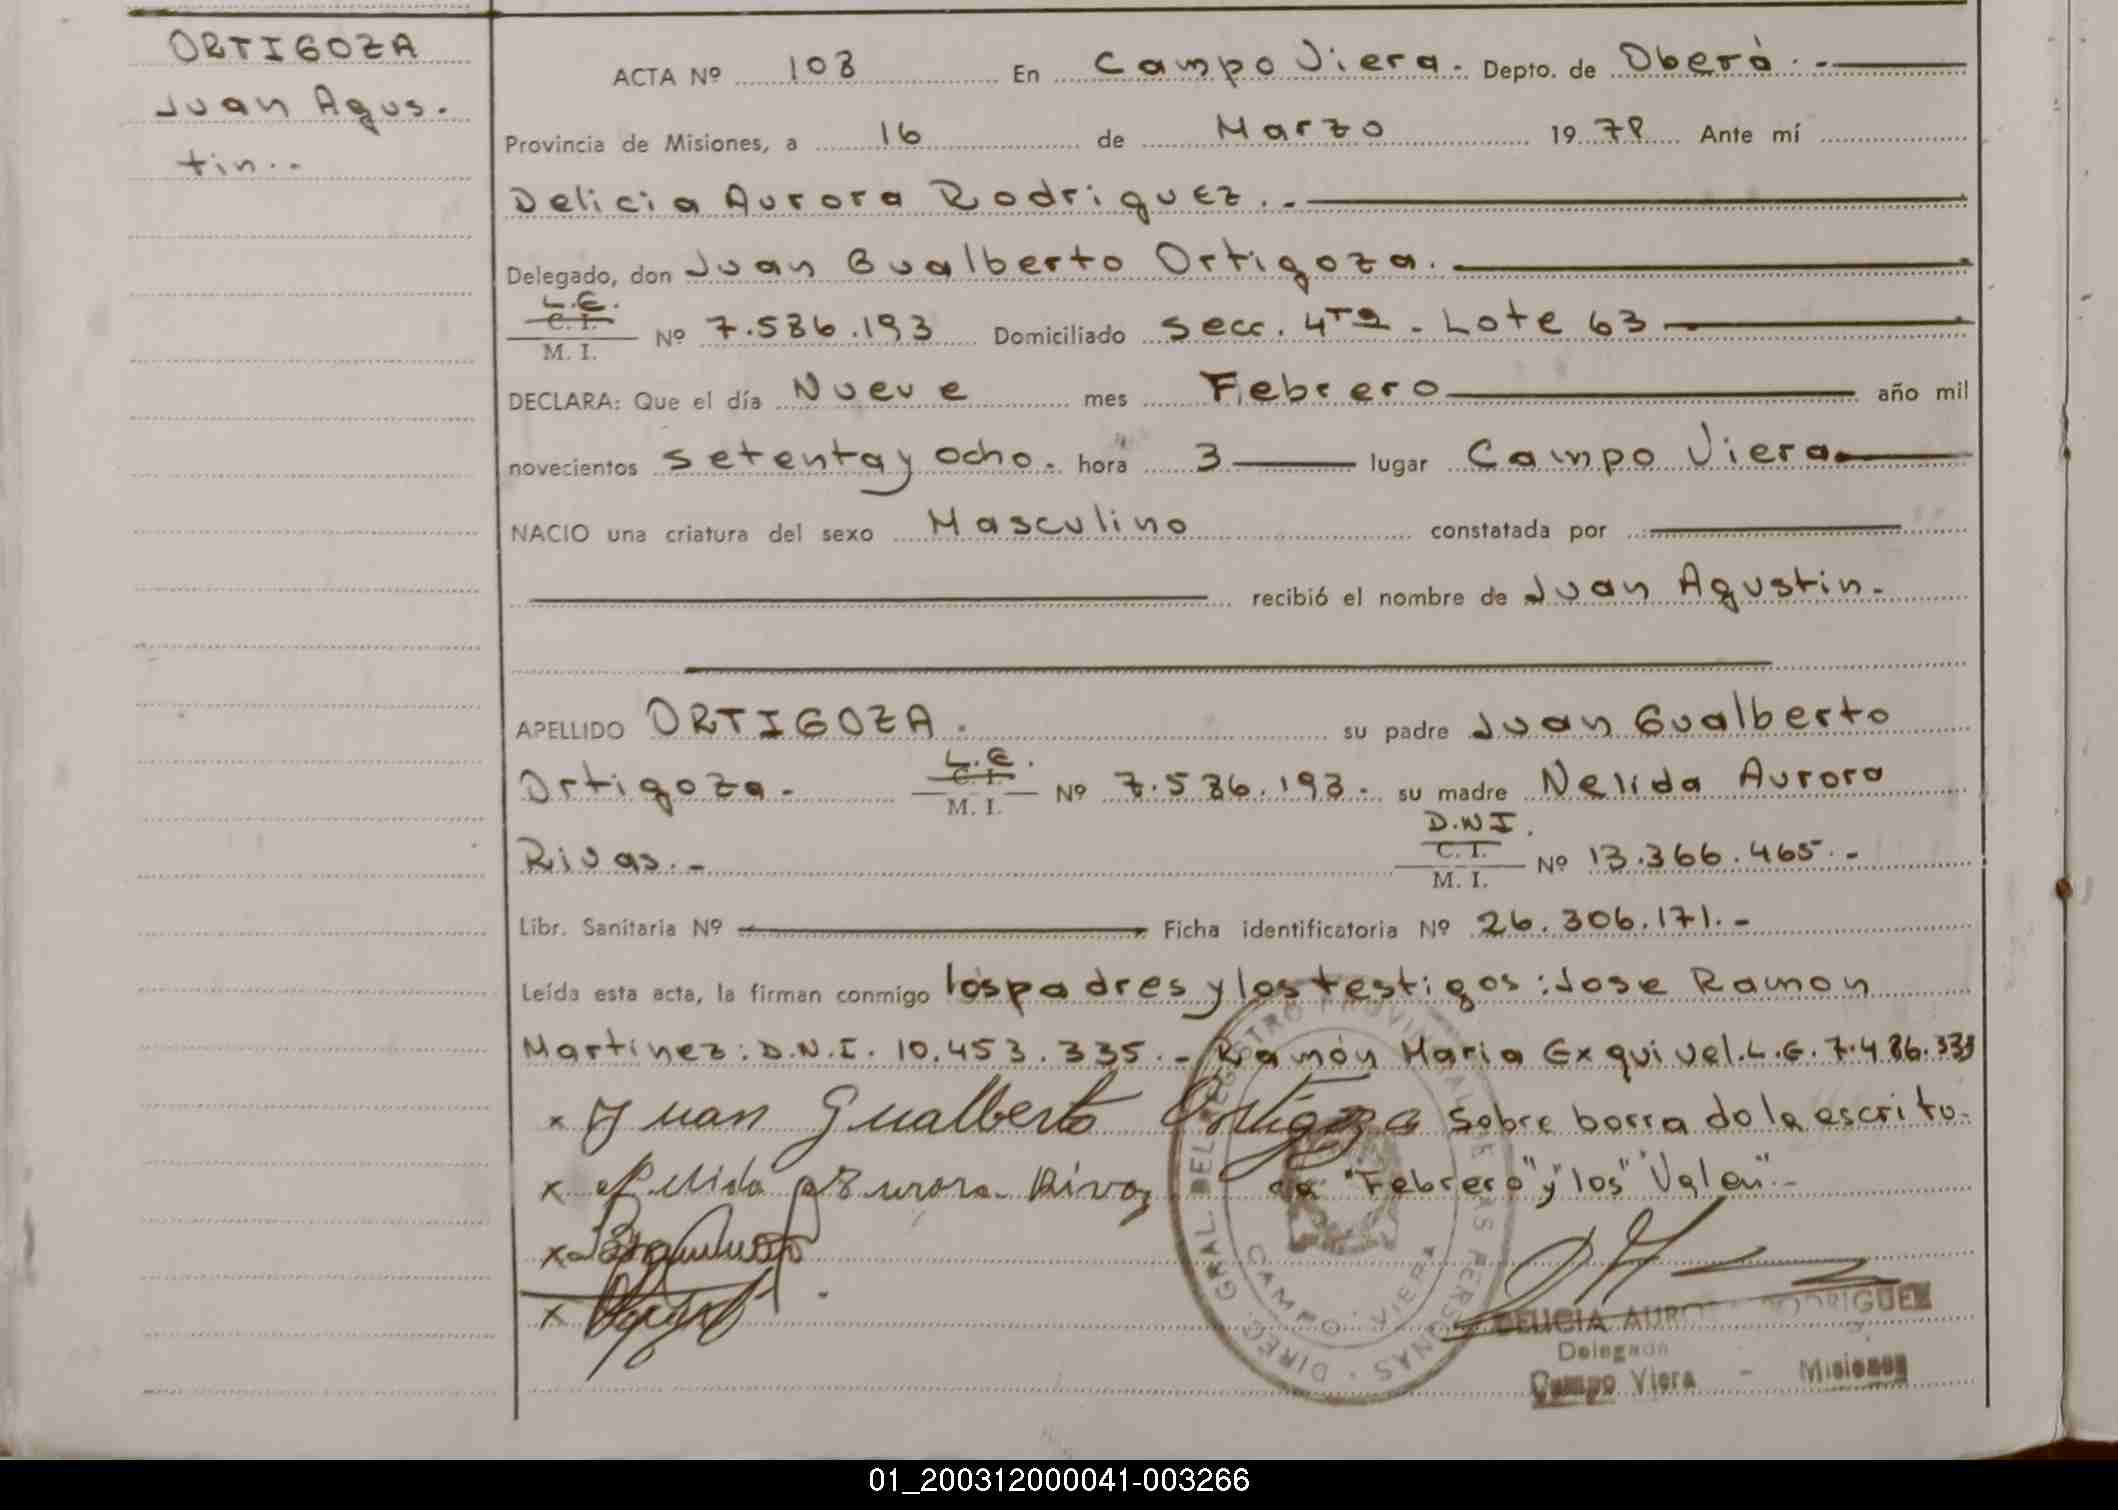 ORTIGOZA
Juan Agus-
tin.-
ACTA Nº 108 En Campo Viera.- Depto. de Oberá.-
Provincia de Misiones, a 16 de Marzo 1978 Ante mí
Delicia Aurora Rodriguez.-
Delegado, don Juan Gualberto Ortigoza.
L.E.
C. I.
M. I. Nº 7.536.193 Domiciliado Secc. 4ta - Lote 63
DECLARA: Que el día Nueve mes Febrero año mil
novecientos setenta y ocho. hora 3 lugar Campo Viera
NACIO una criatura del sexo Masculino constatada por
recibió el nombre de Juan Agustin.
APELLIDO ORTIGOZA. su padre Juan Gualberto
Ortigoza.- L.E. C. I. M. I. Nº 7.536.193.- su madre Nelida Aurora
Rivas.- D.N.I. C. I. M. I. Nº 13.366.465.-
Libr. Sanitaria Nº Ficha identificatoria Nº 26.306.171.-
Leída esta acta, la firman conmigo los padres y los testigos: Jose Ramon
Martinez: D.N.I. 10.453.335.- Ramón Maria Exquivel. L.E. 7.486.333
x Juan Gualberto Ortigoza sobre borrado lo escrito.
x Nelida Aurora Rivas "Febrero" y "los" "Valen".-
x
x
DIREC. GRAL. DEL REGISTRO PROVINCIAL DE LAS PERSONAS
CAMPO VIERA
DELICIA AURORA RODRIGUEZ
Delegada
Campo Viera - Misiones
01_200312000041-003266